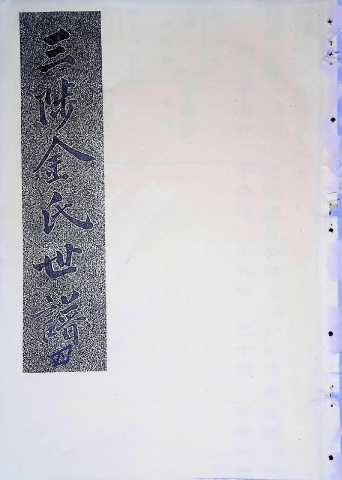 三陟金氏世譜
四